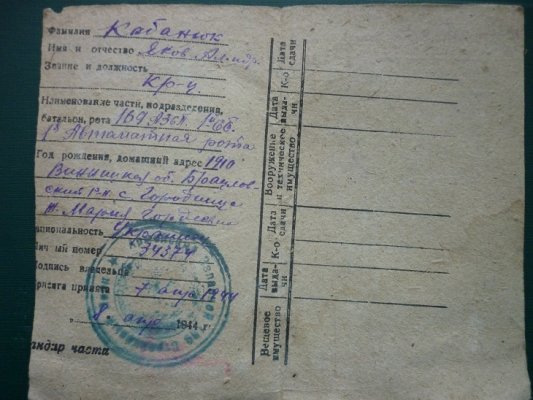 Фамилия Кабанюк
Имя и отчество Яков
Звание и должность
Кр-ц
Наименование части, подразделения,
батальон, рота 169 АЗСП 1й СБ
1я Автоматная рота
Год рождения, домашний адрес 1910
об. Браилов
ский Р-н с. Городище
ж. Мария
циональность Украинец
чный номер 34374
одпись владельца
рисяга принята 7 апр 1944
„ 8 апр 1944 г.
андир части
Вещевое имущество
Дата выда- чи
К-о
Дата сдачи
Вооружение и техническое имущество
Дата выда- чи
К-о
Дата сдачи